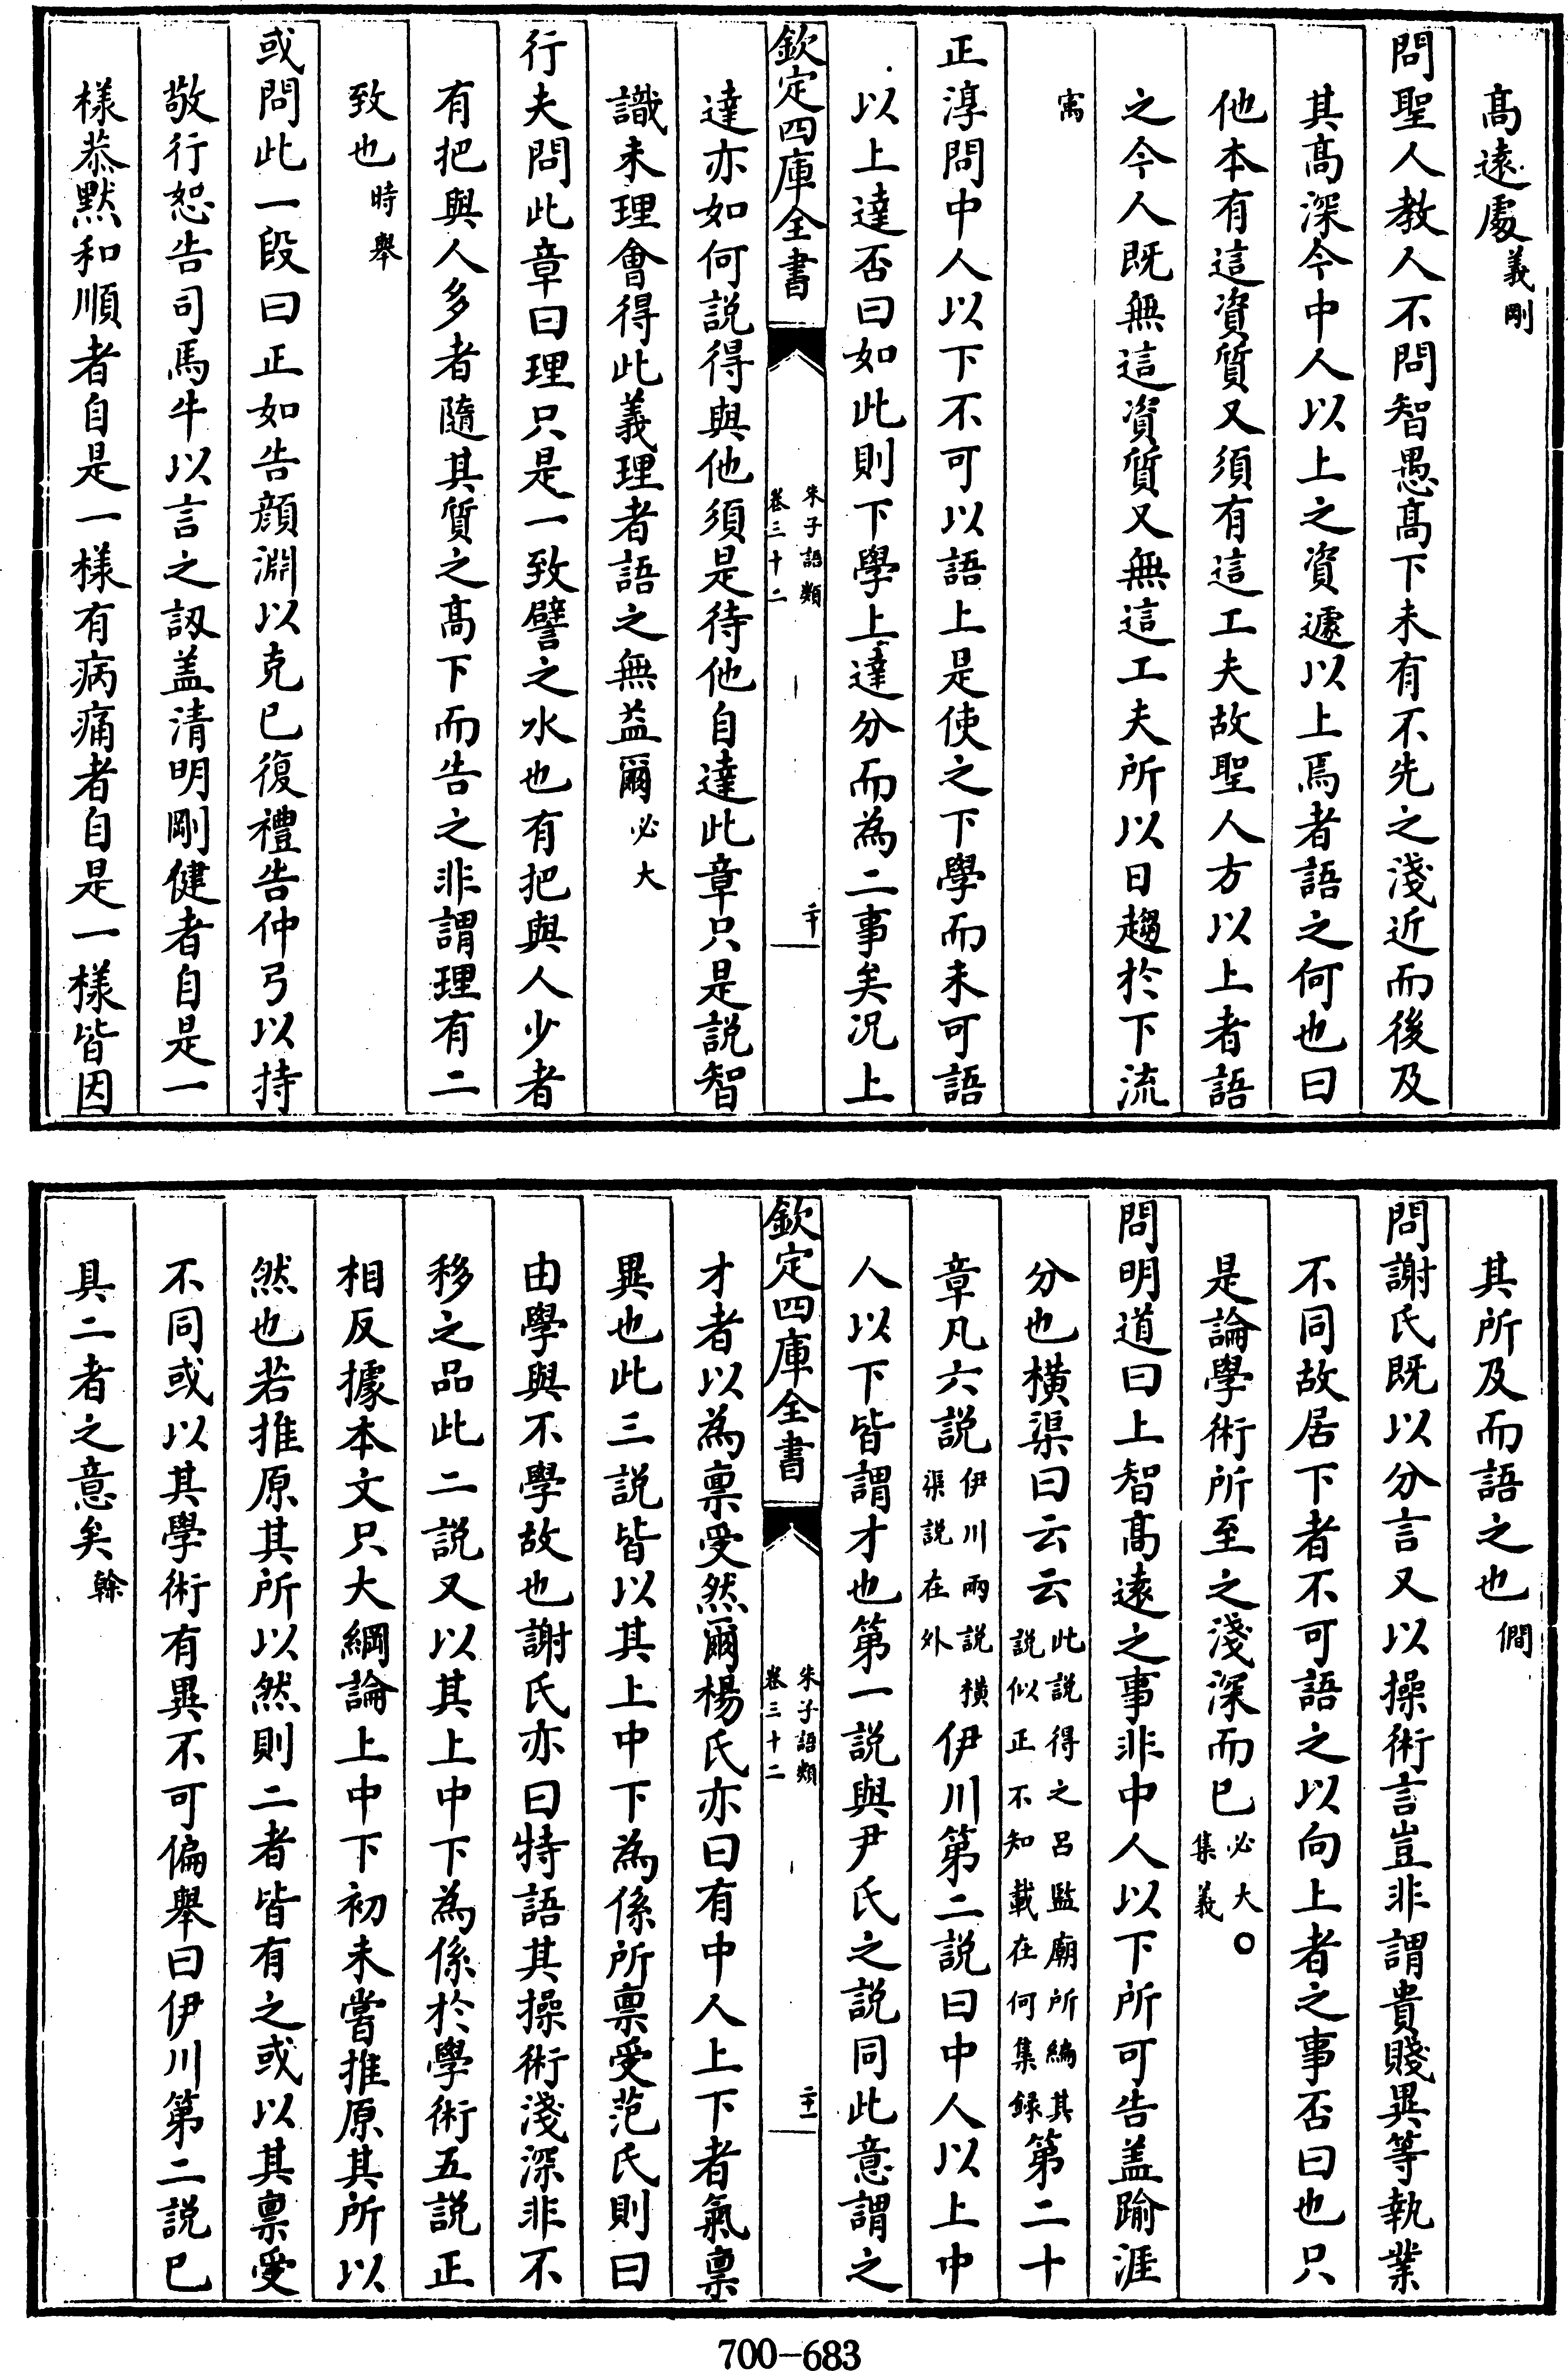 高遠處義剛
問聖人教人不問智愚高下未有不先之淺近而後及
其高深今中人以上之資遽以上焉者語之何也曰
他本有這資質又須有這工夫故聖人方以上者語
之今人既無這資質又無這工夫所以日趨於下流
㝢
正淳問中人以下不可以語上是使之下學而未可語
以上達否曰如此則下學上達分而為二事矣况上
欽定四庫全書
朱子語類
卷三十二
二十
達亦如何説得與他須是待他自達此章只是説智
識未理會得此義理者語之無益爾必大
行夫問此章曰理只是一致譬之水也有把與人少者
有把與人多者隨其質之高下而告之非謂理有二
致也時舉
或問此一段曰正如告顔淵以克己復禮告仲弓以持
敬行恕告司馬牛以言之訒盖清明剛健者自是一
様恭黙和順者自是一様有病痛者自是一様皆因
其所及而語之也僩
問謝氏既以分言又以操術言豈非謂貴賤異等執業
不同故居下者不可語之以向上者之事否曰也只
是論學術所至之淺深而已必大○
集義
問明道曰上智高遠之事非中人以下所可告盖踰涯
分也横渠曰云云此説得之呂監廟所編其
説似正不知載在何集録第二十
章凡六説伊川兩説横
渠説在外伊川第二説曰中人以上中
人以下皆謂才也第一説與尹氏之説同此意謂之
欽定四庫全書
朱子語類
卷三十二
二十一
才者以為禀受然爾楊氏亦曰有中人上下者氣禀
異也此三説皆以其上中下為係所禀受范氏則曰
由學與不學故也謝氏亦曰特語其操術淺深非不
移之品此二説又以其上中下為係於學術五説正
相反據本文只大綱論上中下初未嘗推原其所以
然也若推原其所以然則二者皆有之或以其禀受
不同或以其學術有異不可偏舉曰伊川第二説已
具二者之意矣榦
700-683